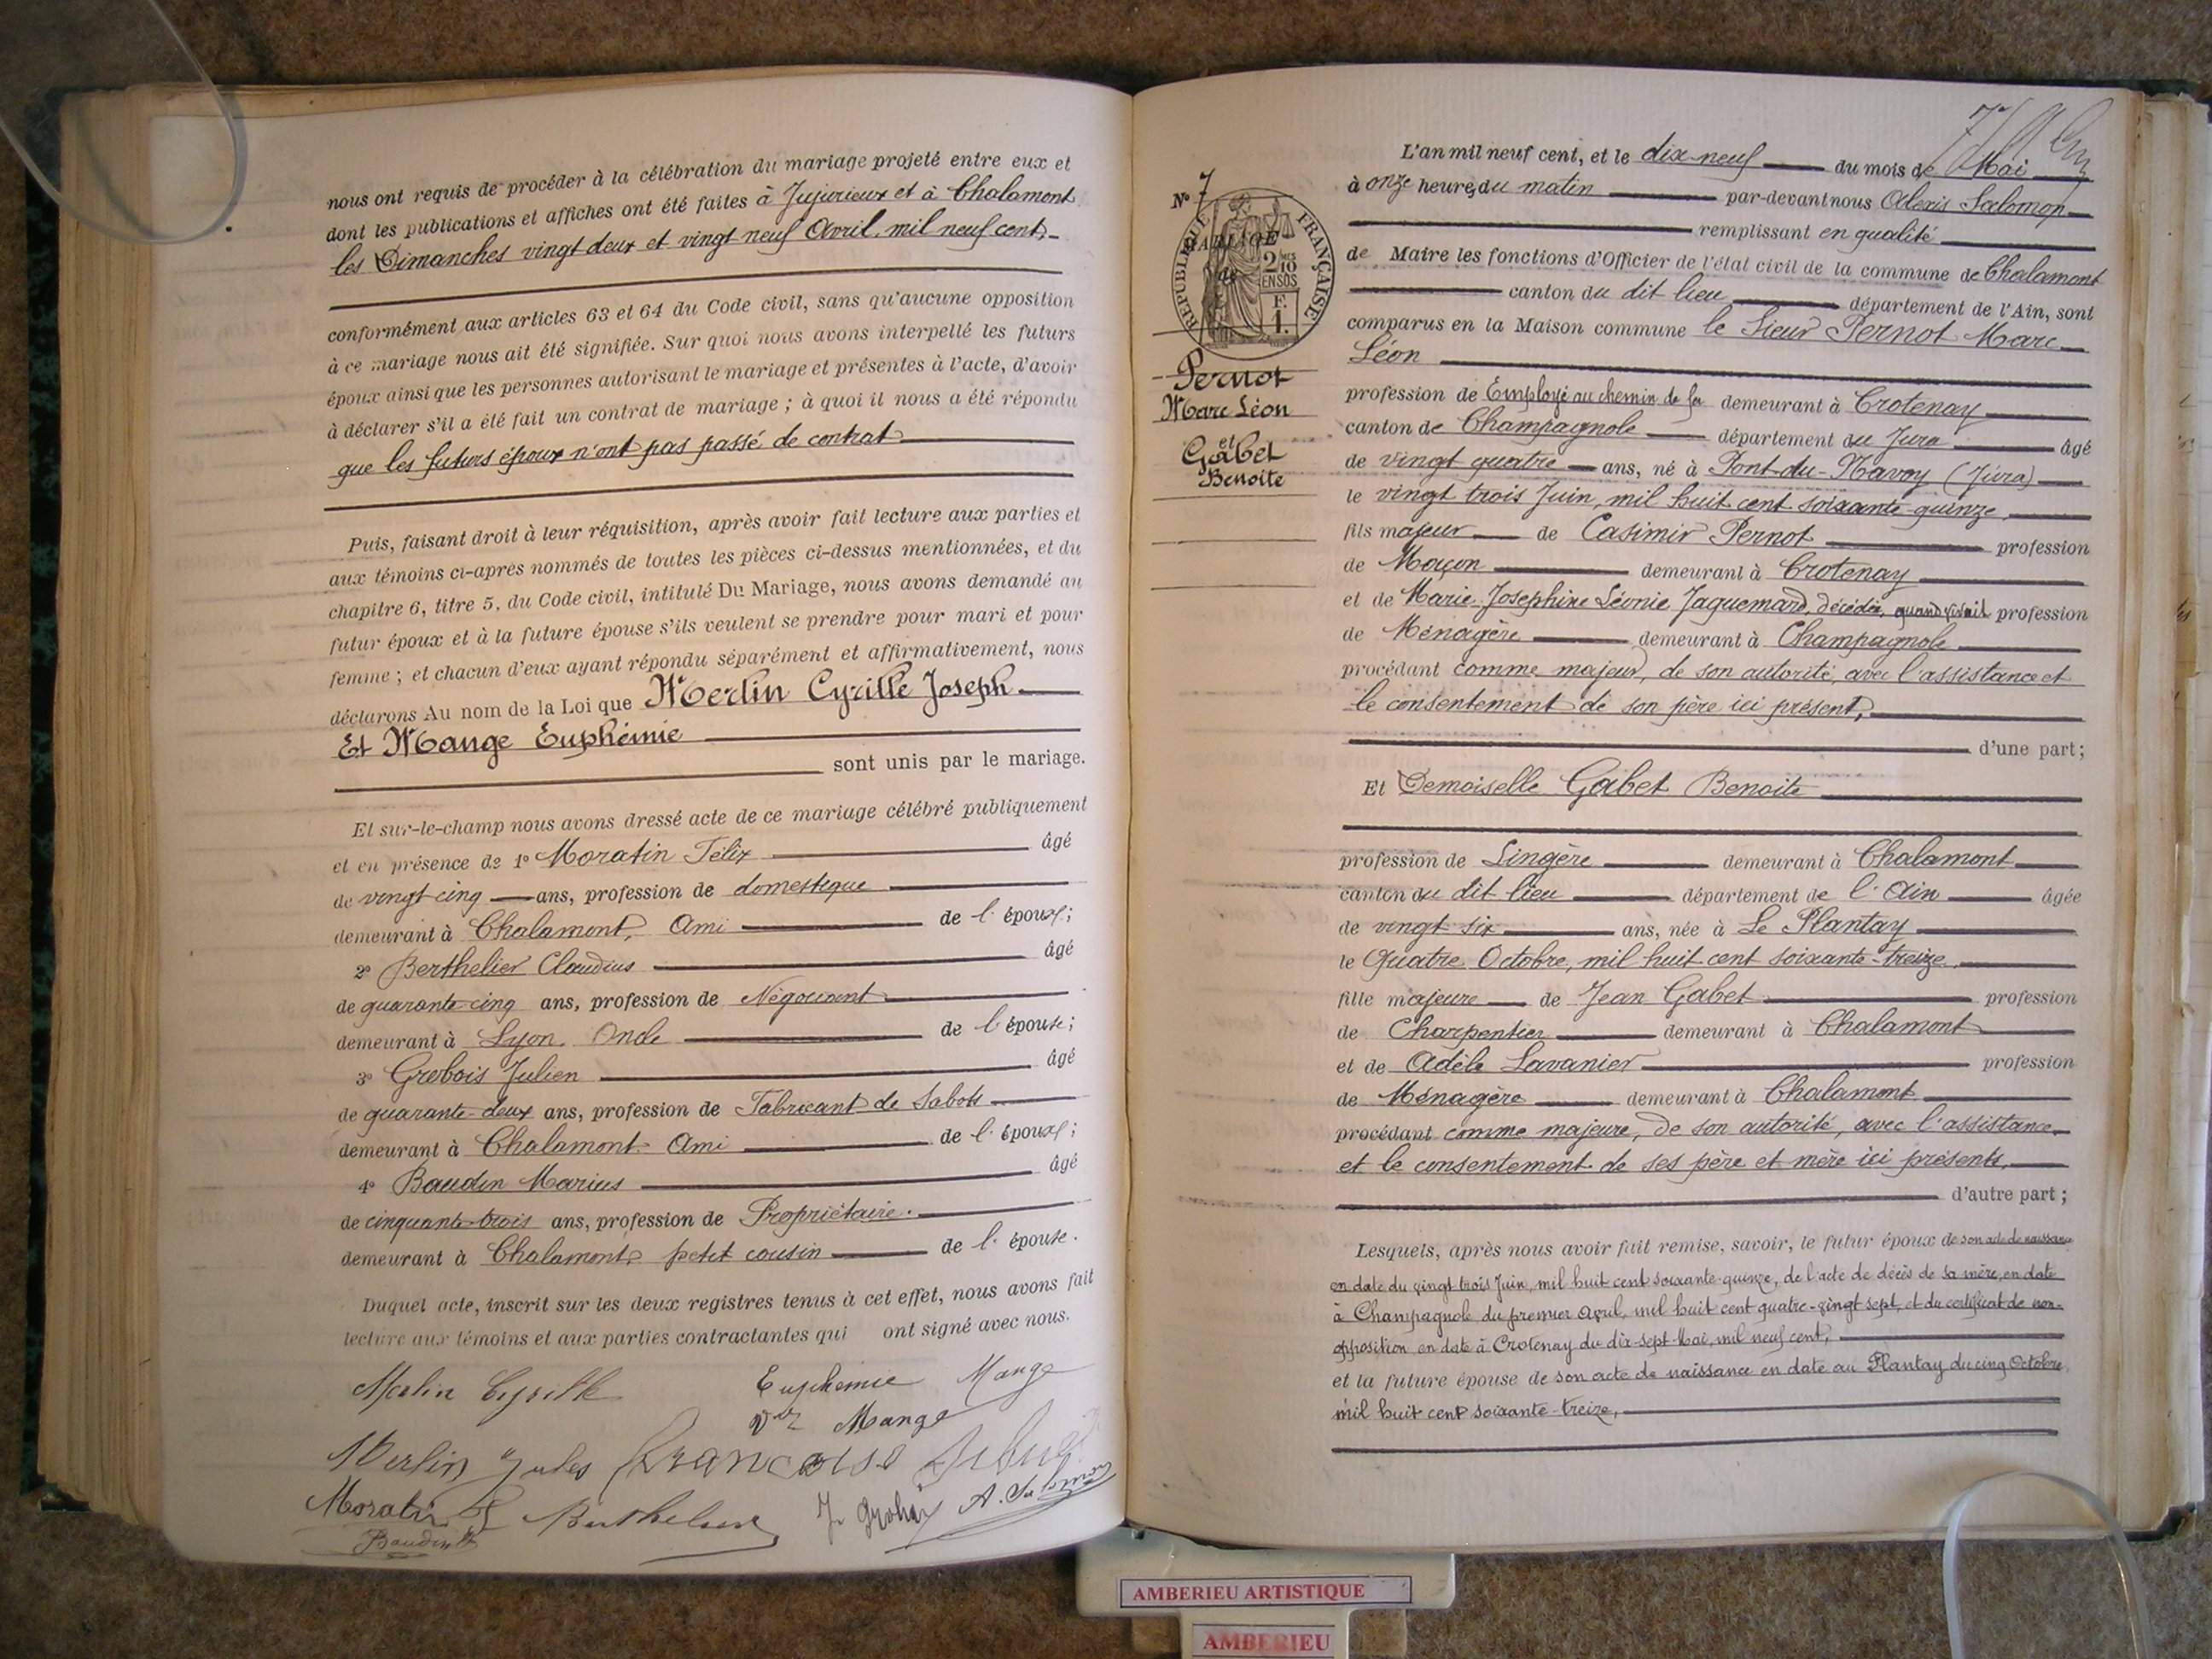 nous ont requis de procéder à la célébration du mariage projeté entre eux et
dont les publications et affiches ont été faites à Jujurieux et à Chalamont
les Dimanches vingt deux et vingt neuf Avril, mil neuf cent,
conformément aux articles 63 et 64 du Code civil, sans qu'aucune opposition
à ce mariage nous ait été signifiée. Sur quoi nous avons interpellé les futurs
époux ainsi que les personnes autorisant le mariage et présentes à l'acte, d'avoir
à déclarer s'il a été fait un contrat de mariage ; à quoi il nous a été répondu
que les futurs époux n'ont pas passé de contrat
Puis, faisant droit à leur réquisition, après avoir fait lecture aux parties et
aux témoins ci-après nommés de toutes les pièces ci-dessus mentionnées, et du
chapitre 6, titre 5, du Code civil, intitulé Du Mariage, nous avons demandé au
futur époux et à la future épouse s'ils veulent se prendre pour mari et pour
femme ; et chacun d'eux ayant répondu séparément et affirmativement, nous
déclarons Au nom de la Loi que Merlin Cyrille Joseph
Et Mange Euphémie
sont unis par le mariage.
Et sur-le-champ nous avons dressé acte de ce mariage célébré publiquement
et en présence de 1° Moratin Félix âgé
de vingt cinq ans, profession de domestique
demeurant à Chalamont, Ami de l'époux ;
2° Berthelier Claudius âgé
de quarante cinq ans, profession de Négociant
demeurant à Lyon, Oncle de l'épouse ;
3° Grobois Julien âgé
de quarante-deux ans, profession de Fabricant de Sabots
demeurant à Chalamont Ami de l'époux ;
4° Baudin Marius âgé
de cinquante-trois ans, profession de Propriétaire
demeurant à Chalamont, petit cousin de l'épouse.
Duquel acte, inscrit sur les deux registres tenus à cet effet, nous avons fait
lecture aux témoins et aux parties contractantes qui ont signé avec nous.
Merlin Cyrille Euphémie Mange
Mange
Merlin Jules Francoise
Moratin Berthelier J Grobois A. Salomon
Baudin
N° 7
REPUBLIQUE FRANÇAISE
MARIAGE
de
2/10 EN SUS
F. 1.
Pernot
Marc Léon
et
Gabet
Benoite
L'an mil neuf cent, et le dix-neuf du mois de Mai
à onze heures du matin par-devant nous Alexis Salomon
remplissant en qualité
de Maire les fonctions d'Officier de l'état civil de la commune de Chalamont
canton du dit lieu département de l'Ain, sont
comparus en la Maison commune le Sieur Pernot Marc
Léon
profession de Employé au chemin de fer demeurant à Crotenay
canton de Champagnole département du Jura âgé
de vingt quatre ans, né à Pont-du-Navoy (Jura)
le vingt trois Juin, mil huit cent soixante-quinze,
fils majeur de Casimir Pernot profession
de Maçon demeurant à Crotenay
et de Marie Josephine Léonie Jaquemard, décédée, quand vivait profession
de Ménagère demeurant à Champagnole
procédant comme majeur, de son autorité, avec l'assistance et
le consentement de son père ici présent,
d'une part ;
Et Demoiselle Gabet Benoite
profession de Lingère demeurant à Chalamont
canton du dit lieu département de l'Ain âgée
de vingt six ans, née à Le Plantay
le Quatre Octobre, mil huit cent soixante-treize
fille majeure de Jean Gabet profession
de Charpentier demeurant à Chalamont
et de Adèle Lavanier profession
de Ménagère demeurant à Chalamont
procédant comme majeure, de son autorité, avec l'assistance
et le consentement de ses père et mère ici présents,
d'autre part ;
Lesquels, après nous avoir fait remise, savoir, le futur époux de son acte de naissance
en date du vingt trois Juin, mil huit cent soixante-quinze, de l'acte de décès de sa mère, en date
à Champagnole du premier Avril, mil huit cent quatre-vingt sept, et du certificat de non-
opposition en date à Crotenay du dix-sept Mai, mil neuf cent,
et la future épouse de son acte de naissance en date au Plantay du cinq Octobre
mil huit cent soixante-treize,
AMBERIEU ARTISTIQUE
AMBERIEU